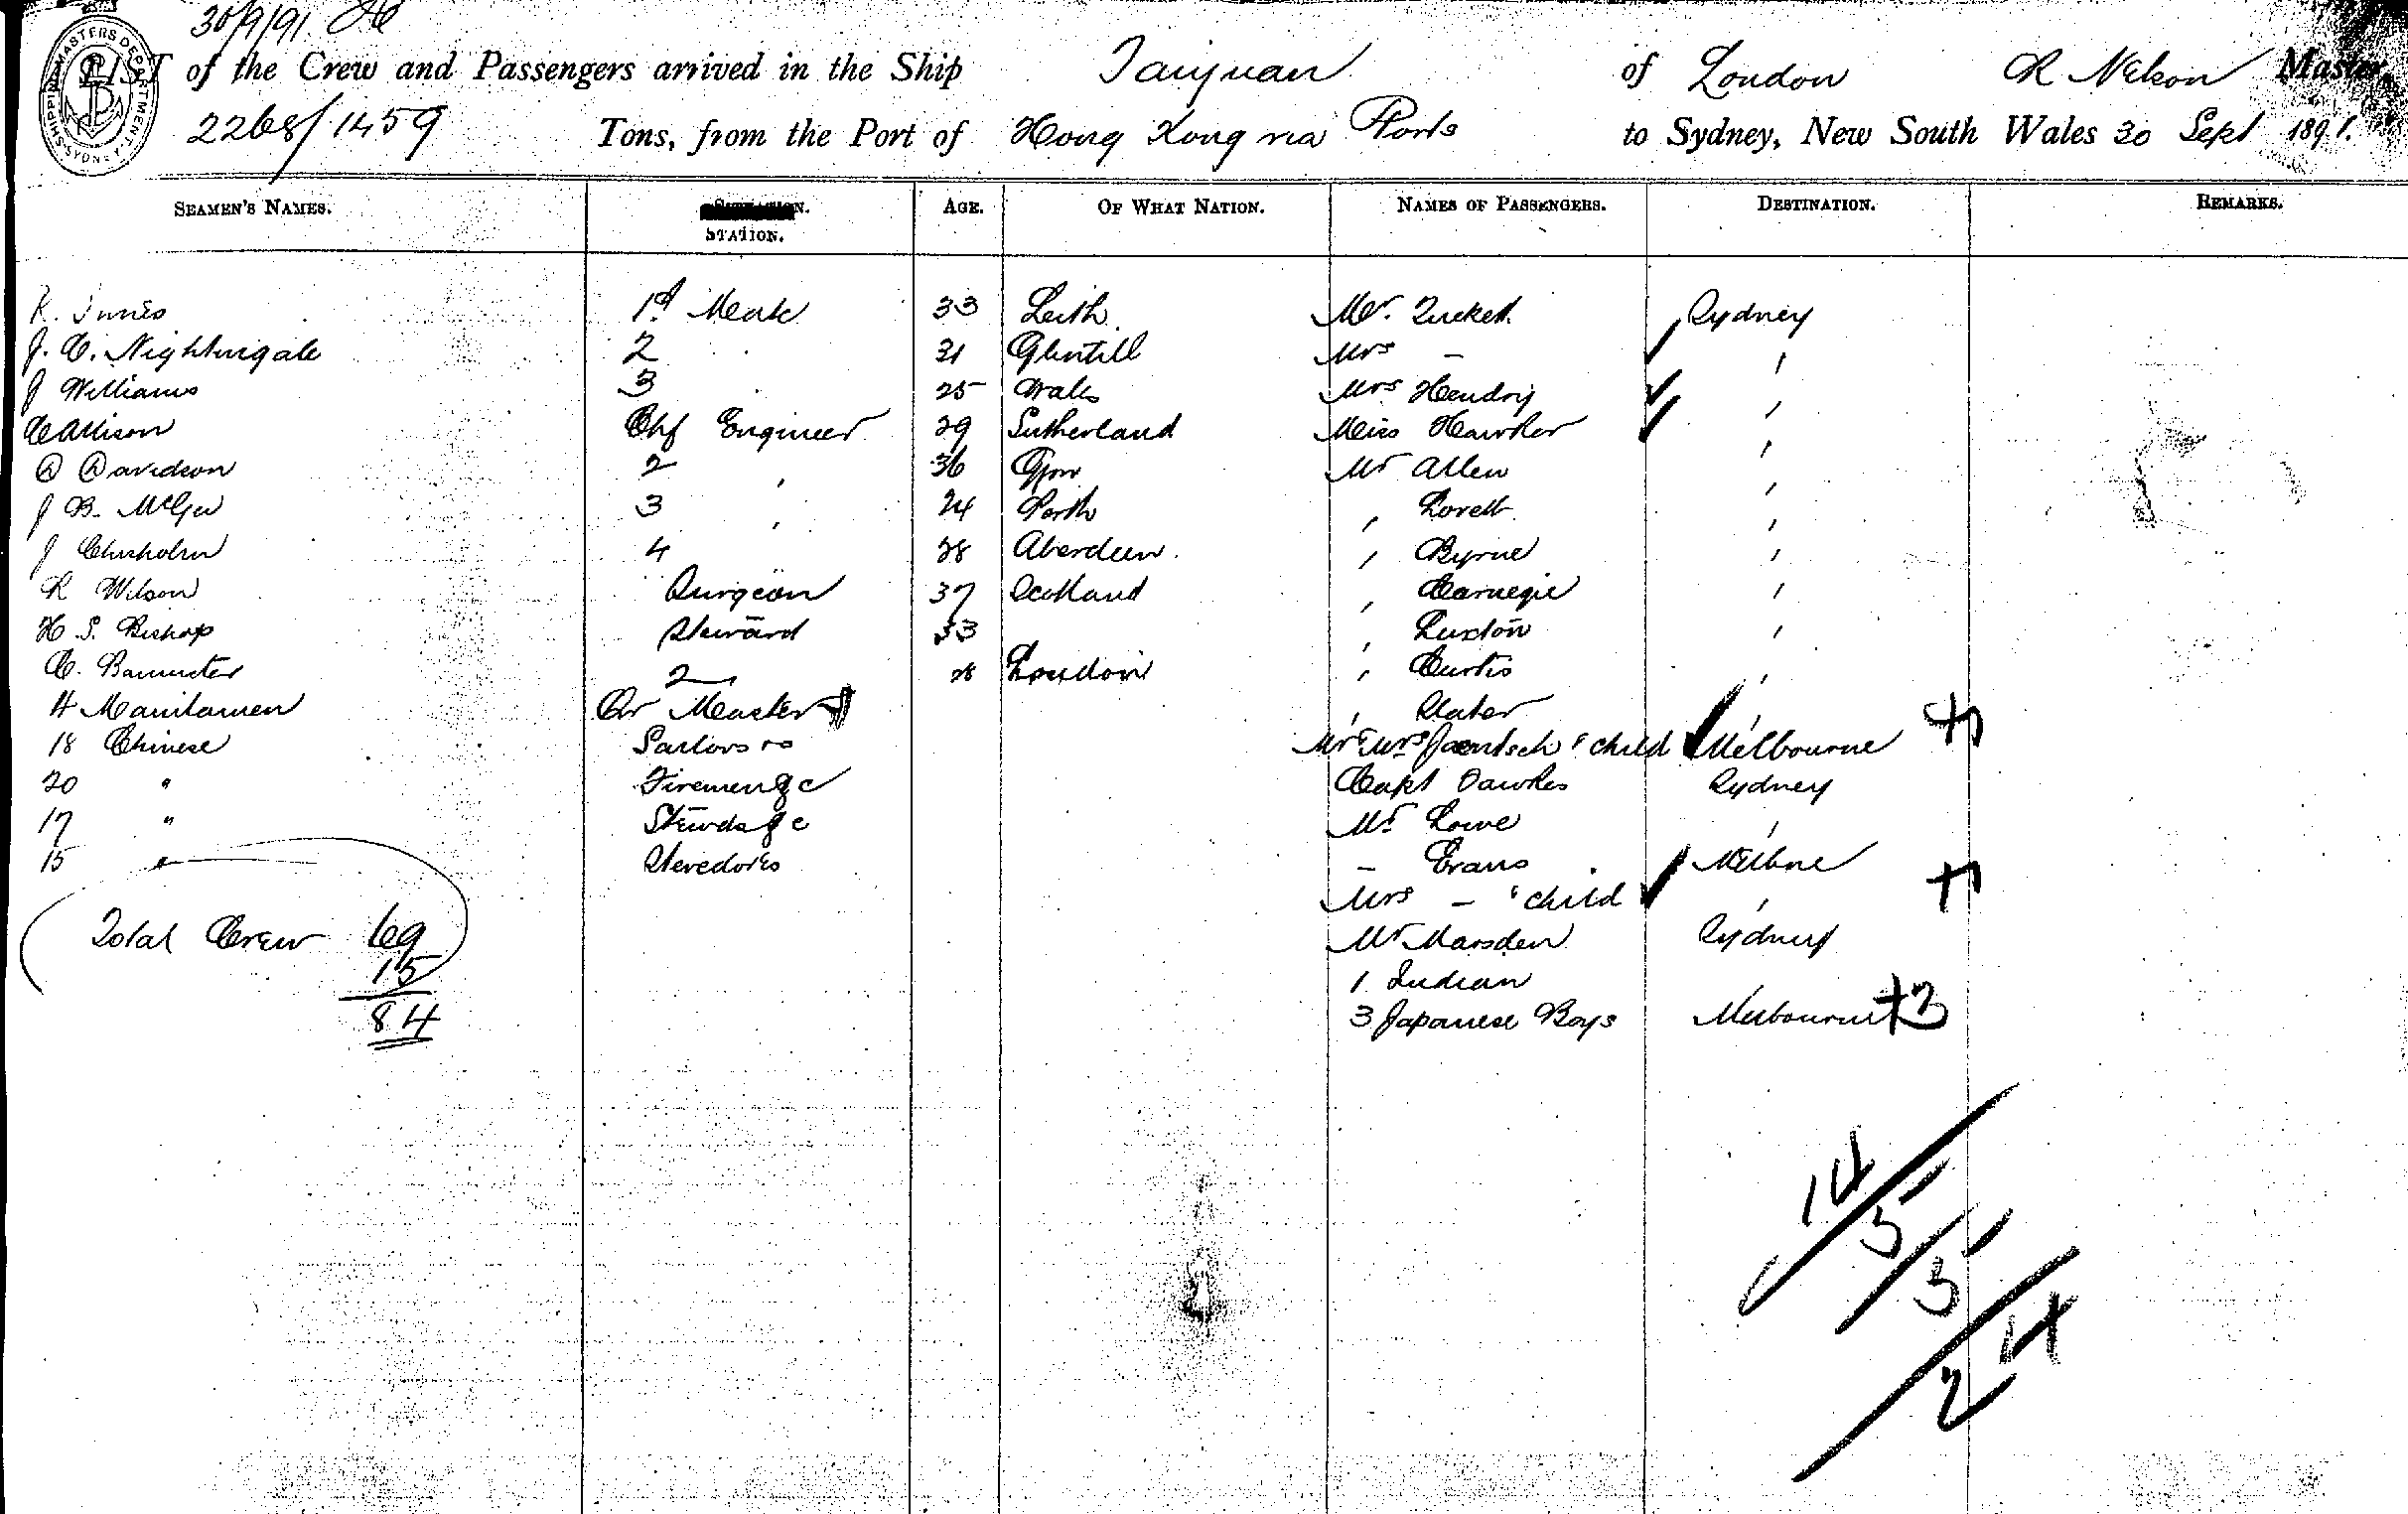 30/9/91
SHIPPING MASTERS DEPARTMENT SYDNEY
LIST of the Crew and Passengers arrived in the Ship Taiyuan of London R Nelson Master,
2268/1459 Tons, from the Port of Hong Kong via Ports to Sydney, New South Wales 30 Sept 1891.
SEAMEN'S NAMES. STATION. AGE. OF WHAT NATION. NAMES OF PASSENGERS. DESTINATION. REMARKS.
R. Innes 1st Mate 33 Leith Mr. Tucket Sydney
J. C. Nightingale 2 31 Mrs - '
J Williams 3 25 Wales Mrs Hendry '
C Allison Chf Engineer 29 Sutherland Miss Hawker '
D Davidson 2 ' 36 Mr Allen '
J B. McGee 3 ' 24 Perth ' Lovett '
J Chisholm 4 28 Aberdeen ' Byrne '
R Wilson Surgeon 37 Scotland ' Carnegie '
H S. Bishop Steward 33 ' Luxton '
C. Bannister 2 28 London ' Curtis '
4 Manilamen Qr Master ' Slater '
18 Chinese Sailors Mr & Mrs Jaentsch & child Melbourne
20 " Firemen &c Capt Dawkes Sydney
17 " Stewds &c Mr Lowe '
15 " Stevedores - Evans Melbne
Mrs - & child '
Total Crew 69 Mr Marsden Sydney
15 1 Indian '
84 3 Japanese Boys Melbourne +3
14/
5/1
3/1
24